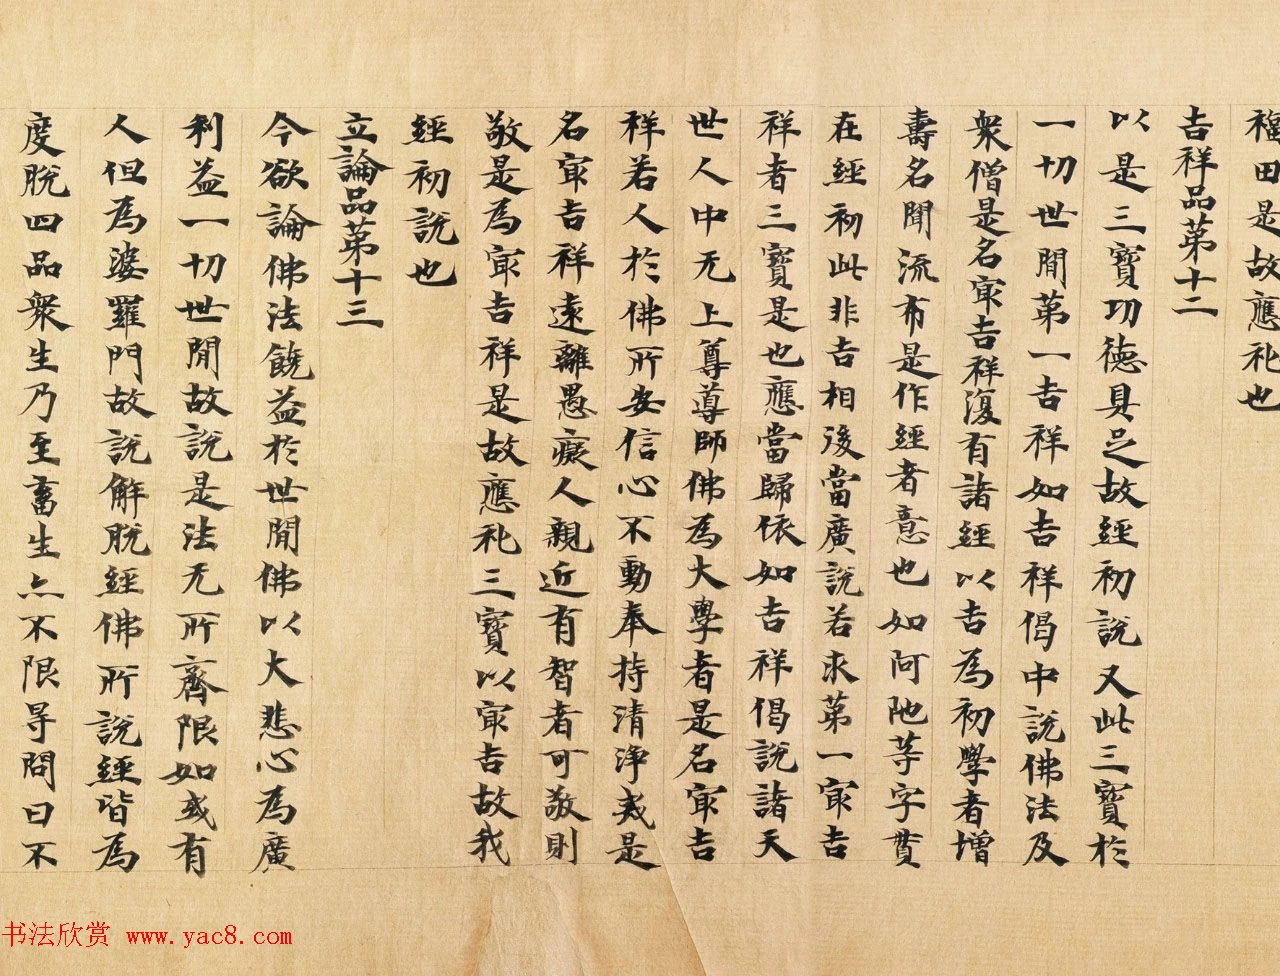 福田是故應礼也
吉祥品第十二
以是三寶功德具足故經初說又此三寶於
一切世間第一吉祥如吉祥偈中說佛法及
衆僧是名㝡吉祥復有諸經以吉為初學者增
壽名聞流布是作經者意也如阿陁等字貫
在經初此非吉相後當廣說若求第一㝡吉
祥者三寶是也應當歸依如吉祥偈說諸天
世人中无上尊導師佛為大學者是名㝡吉
祥若人於佛所安信心不動奉持清淨戒是
名㝡吉祥遠離愚癡人親近有智者可敬則
敬是為㝡吉祥是故應礼三寶以㝡吉故我
經初說也
立論品第十三
今欲論佛法饒益於世間佛以大悲心為廣
利益一切世間故說是法无所齊限如或有
人但為婆羅門故說解脫經佛所說經皆為
度脫四品衆生乃至畜生亦不限㝵問曰不
书法欣赏 www.yac8.com